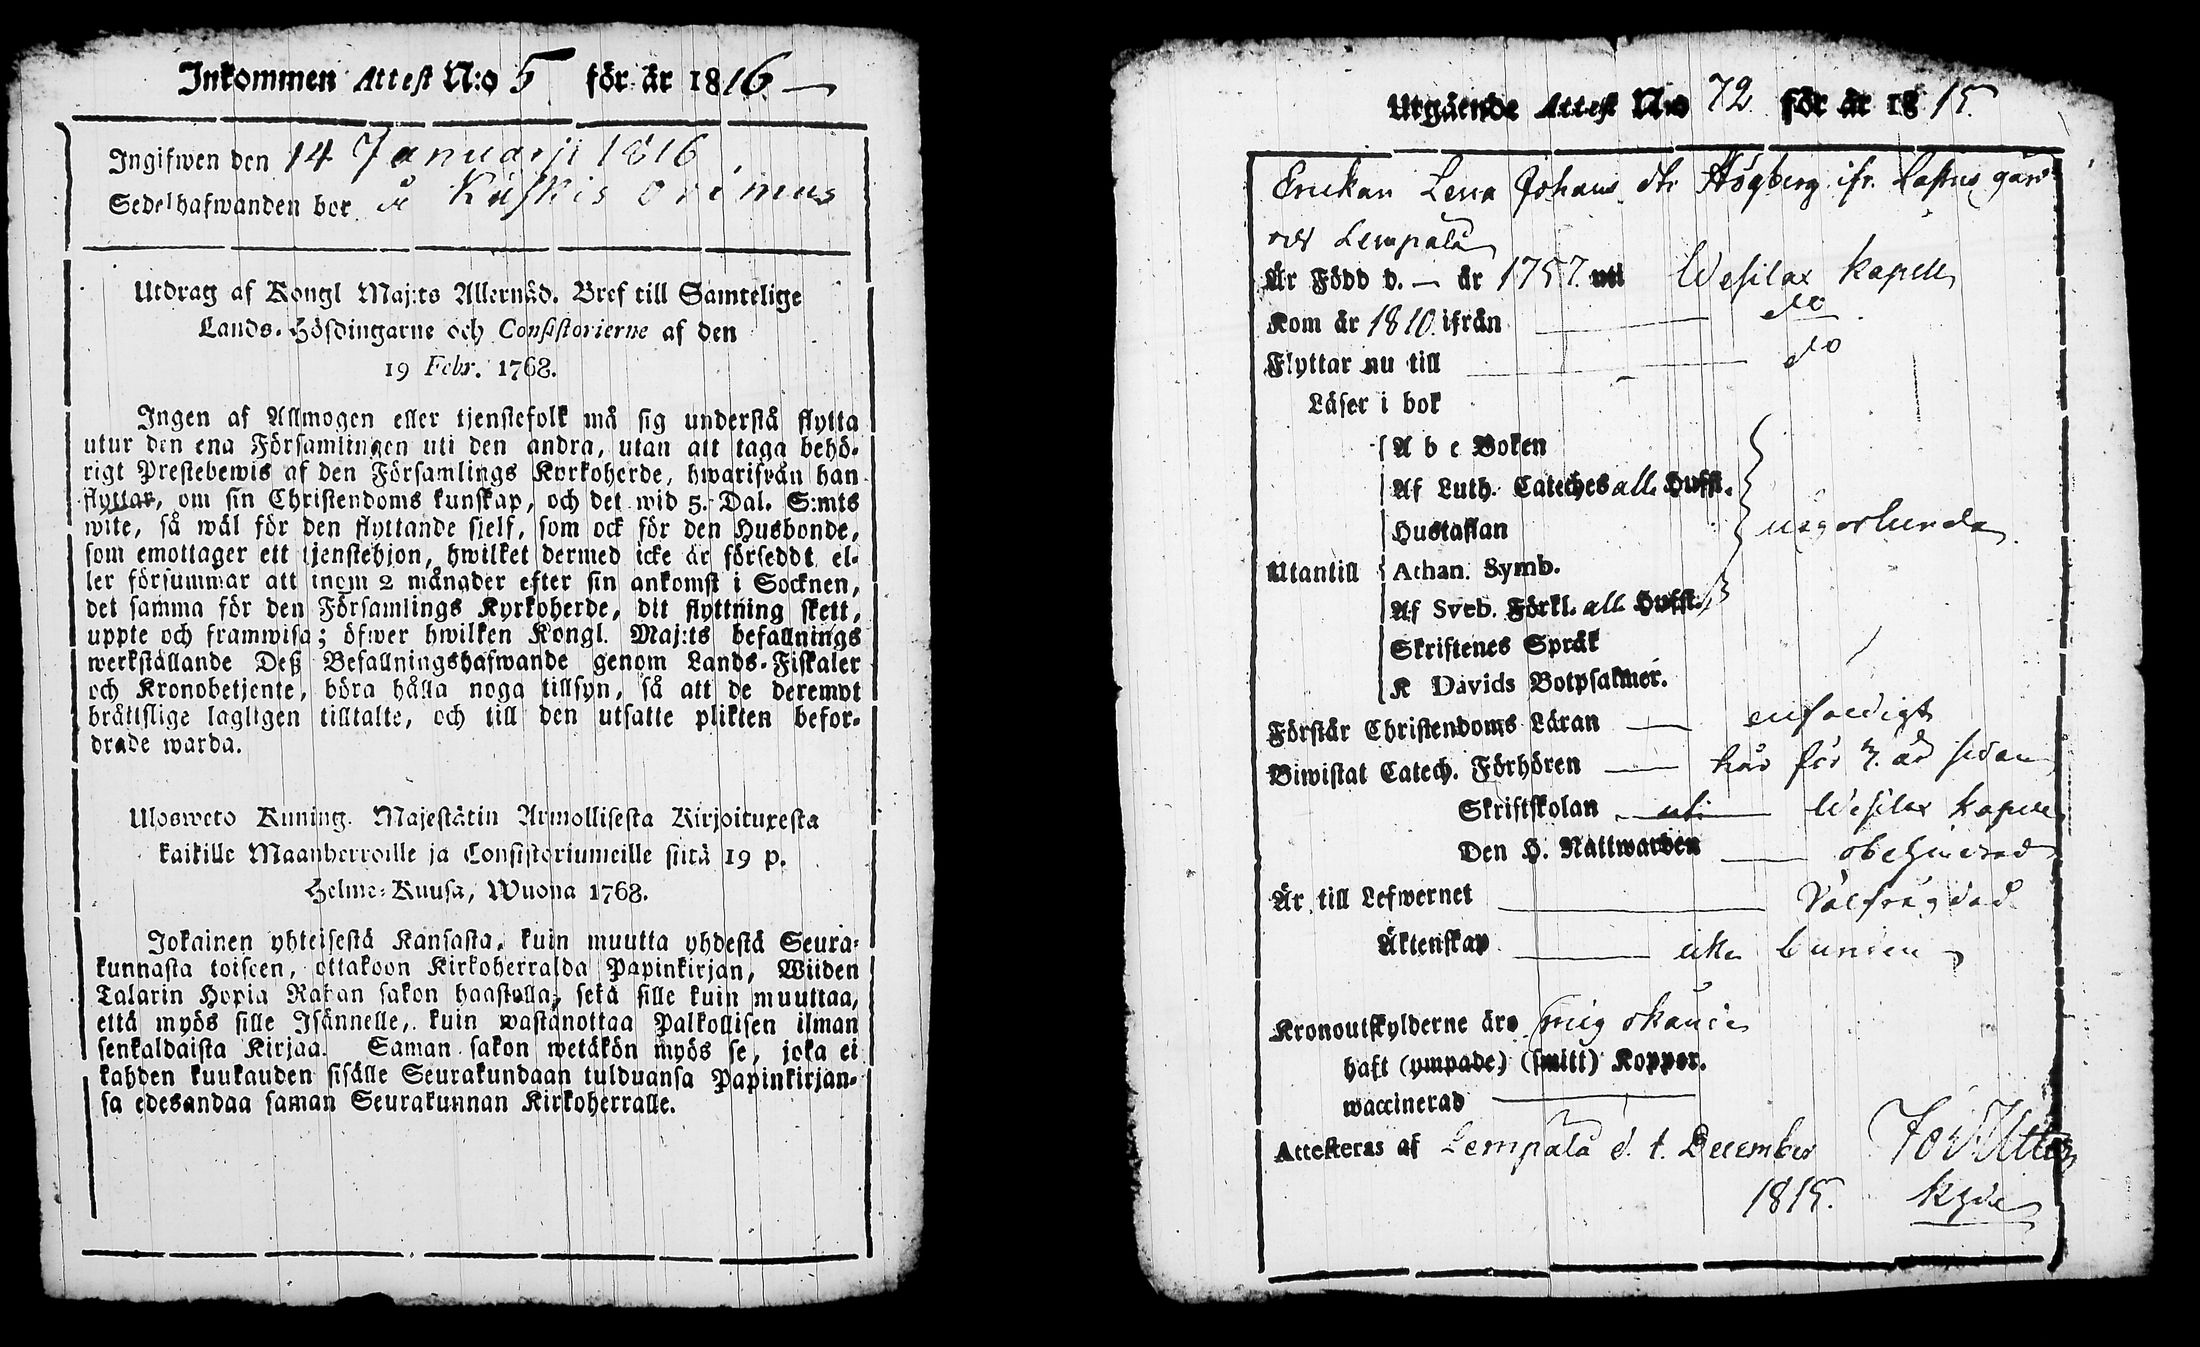 Inkommen Attest N:o 5 för år 1816.
Ingifwen den 14 Januarii 1816.
Sedelhafwanden bor å
Utdrag af Kongl Maj:ts Allernåd. Bref till Samtelige
Lands-Höfdingarne och Consistorierne af den
19 Febr. 1768.
Ingen af Allmogen eller tjenstefolk må sig understå flytta
utur den ena Församlingen uti den andra, utan att taga behö-
rigt Prestebewis af den Församlings Kyrkoherde, hwarifrån han
flyttar, om sin Christendoms kunskap, och det wid 5. Dal. S:mts
wite, så wäl för den flyttande sielf, som ock för den Husbonde,
som emottager ett tjenstehjon, hwilket dermed icke är förseddt el-
ler försummar att inom 2 månader efter sin ankomst i Socknen,
det samma för den Församlings Kyrkoherde, dit flyttning skett,
uppte och framwisa; öfwer hwilken Kongl. Maj:ts befallnings
werkställande Deß Befallningshafwande genom Lands-Fiskaler
och Kronobetjente, böra hålla noga tillsyn, så att de deremot
bråttslige lagligen tilltalte, och till den utsatte plikten befor-
drade warda.
Ulosweto Kuning. Majestätin Armollisesta Kirjoituxesta
kaikille Maanherroille ja Consistoriumeille siitä 19 p.
Helme-Kuusa, Wuona 1768.
Jokainen yhteisestä Kansasta, kuin muutta yhdestä Seura-
kunnasta toiseen, ottakoon Kirkoherralda Papinkirjan, Wiiden
Talarin Hopia Rahan sakon haastolla, sekä sille kuin muuttaa,
että myös sille Isännelle, kuin wastanottaa Palkollisen ilman
senkaldaista Kirjaa. Saman sakon wetäkön myös se, joka ei
kahden kuukauden sisälle Seurakundaan tulduansa Papinkirjan-
sa edesandaa saman Seurakunnan Kirkoherralle.
Utgående Attest N:o 72. för år 1815.
Enckan Lena Johans dtr Högberg ifr.
Lempälä
Är Född d. — år 1757. uti Wesilax kapell
Kom år 1810. ifrån do
Flyttar nu till do
Läser i bok
A b c Boken
Af Luth. Cateches all. Hufst.
Hustaflan någorlunda.
Utantill Athan. Symb.
Af Sveb. Förkl. all. Hufst.
Skriftenes Språk
K Davids Botpsalmer.
Förstår Christendoms Läran — enfaldigt
Biwistat Catech. Förhören — här för 3. år sedan
Skriftskolan uti Wesilax kapell
Den H. Nattwarden — obehindrad
Är till Lefwernet Välfrägdad
Äktenskap icke bunden
Kronoutskylderne äro mig okände
haft (ympade) (smitt) Koppor.
waccinerad
Attesteras af Lempälä d. 1. December
1815.